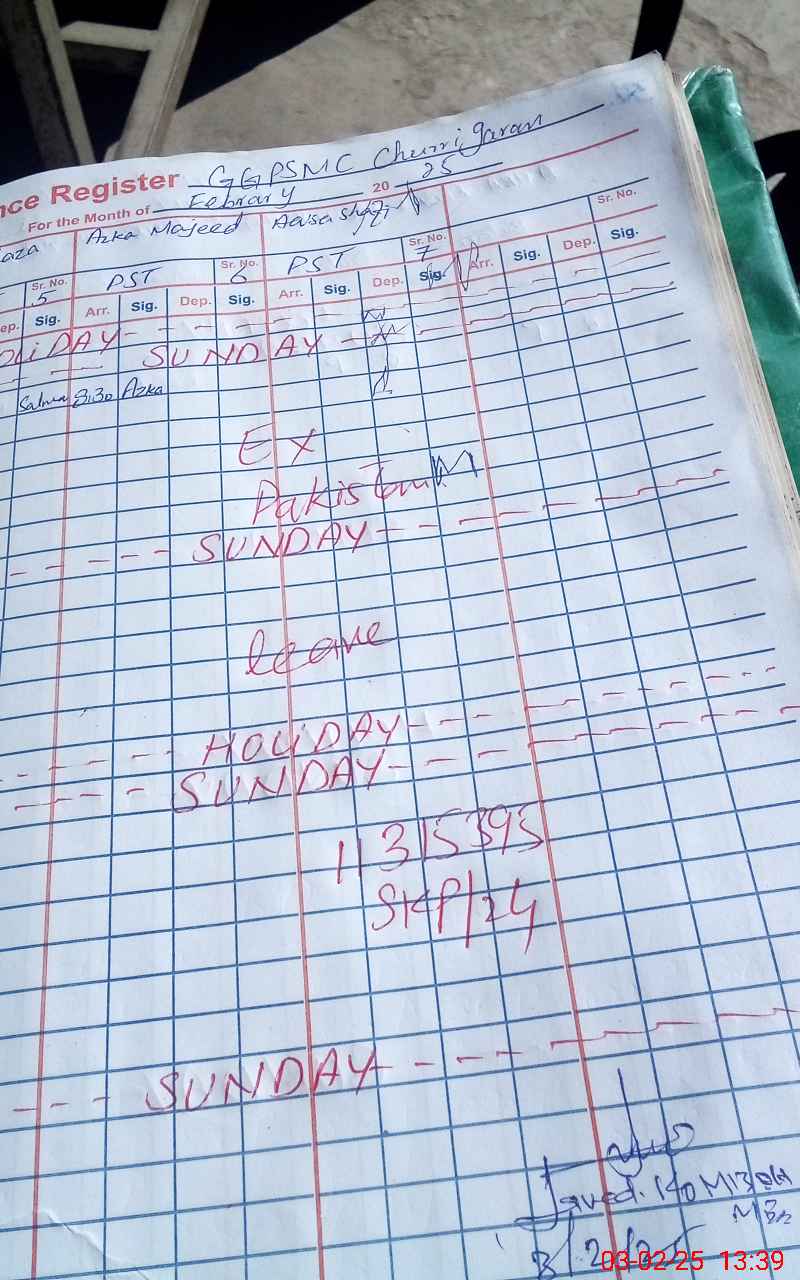 nce Register GGPSMC Churrigaran
For the Month of Febrary 20 25
aza Azka Majeed Aaisa
Sr. No. 5 PST Sr. No. 6 PST Sr. No. 7 Sr. No.
ep. Sig. Arr. Sig. Dep. Sig. Arr. Sig. Dep. Sig. Arr. Sig. Dep. Sig.
OLIDAY - - - - - -
SUNDAY - -
Salma 8:30 Azka
Ex
Pakistan
- - - - - SUNDAY - - - - -
leave
- - - - HOLIDAY - - - - -
- - - - SUNDAY - - - - -
11315395
SKP/24
- - - SUNDAY - - - - -
Javed
3/2/25
03-02-25 13:39